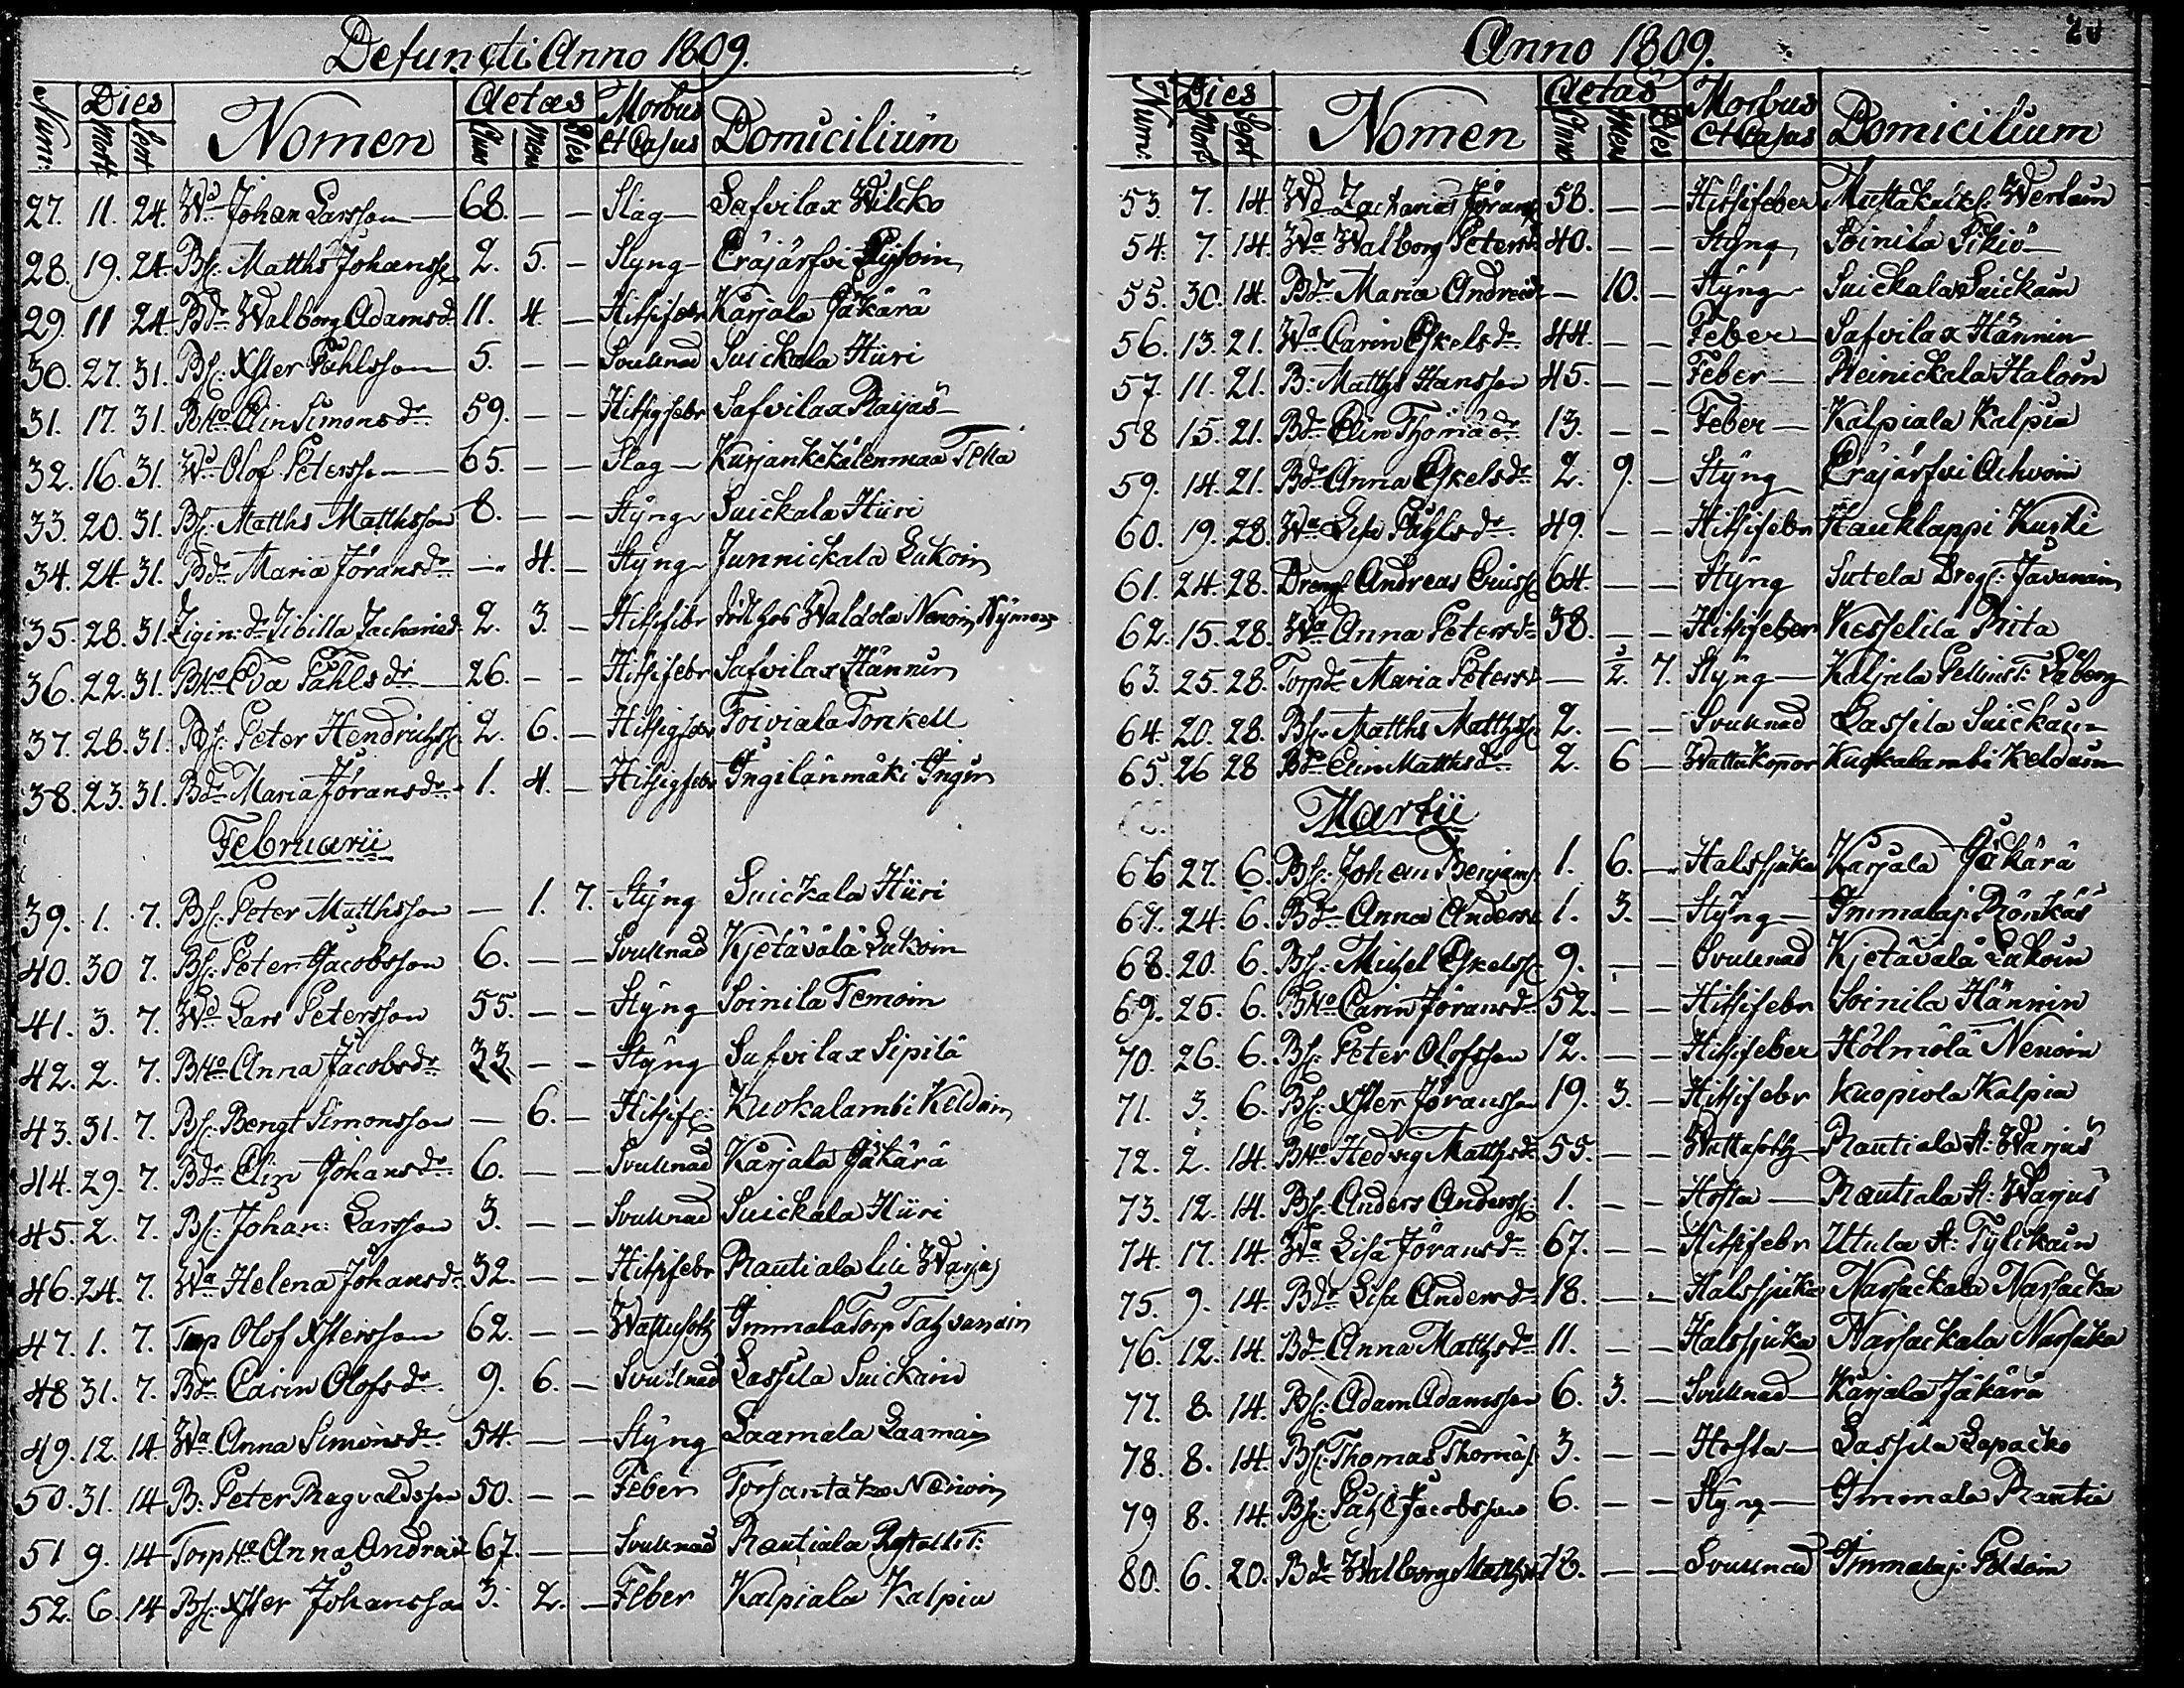 Defuncti Anno 1809.
Num: Dies Mort Sept Nomen Aetas Anni Mens Dies Morbus et Casus Domicilium
27. 11. 24. Wd. Johan Larsson 68. — — Slag Safvilax Wilcko
28. 19. 24. Bs. Matths Johanss 2. 5. — Styng Eräjärfvi
29. 11 24 Bdr. Walborg Adamsdr. 11. 4. — Hitsifebr Kärjala Jäkärä
30. 27. 31. Bs. Xster Påhlsson 5. — — Svullnad Suickala Hiiri
31. 17. 31. Bho. Elin Simonsdr. 59. — — Hitsigfebr Safvilax Raijas
32. 16. 31. Wd. Olof Petersson 65. — — Slag Kurjankekälenmaa Tella
33. 20. 31. Bs. Matths Matthsson 8. — — Styng Suickala Hiiri
34. 24. 31. Bdr. Maria Jöransdr. — 4. — Styng Junnickala Lukoin
35. 28. 31. Zigin: dr. Sibilla Zachariedr. 2. 3. — Hitsifebr Waldola Nenoin
36. 22. 31. Bho. Eva Påhlsdr. 26. — — Hitsifebr Safvilax Hännin
37. 28. 31. Bs. Peter Hendrichss 2. 6. — Hitsigfebr Toiviala Tonkell
38. 23. 31. Bdr. Maria Jöransdr. 1. 4. — Hitsigfebr Ingilänmäki Ingin
Februarii
39. 1. 7. Bs. Peter Matthsson — 1. 7. Styng Suickala Hiiri
40. 30 7. Bs. Peter Jacobsson 6. — — Svullnad Kjetävälä Lukoin
41. 3. 7. Wd. Lars Petersson 55. — — Styng Soinila Temoin
42. 2. 7. Bho. Anna Jacobsdr. 33. — — Styng Safvilax Sipilä
43. 31. 7. Bs. Bengt Simonsson — 6. — Hitsif: Kuokalambi Keldain
44. 29. 7. Bdr. Elin Johansdr. 6. — — Svullnad Kärjala Jäkärä
45. 2. 7. Bs. Johan: Larsson 3. — — Svullnad Suickala Hiiri
46. 24. 7. Wa. Helena Johansdr. 32. — — Hitsifebr Rautiala lili Warjus
47. 1. 7. Torp Olof Xstersson 62. — — Wattusotz Immala Torp Tatzvanain
48 31. 7. Bdr. Carin Olofsdr. 9. 6. — Svullnad Lassila Suickain
49. 12. 14 Wa. Anna Simonsdr. 54. — — Styng Laamala Laamain
50. 31. 14 B: Peter Ragvaldsson 50. — — Feber Torsantaka Nenoin
51 9. 14 Torpho. Anna Andraedr. 67. — — Svullnad Rautiala T:
52. 6. 14 Bs. Xster Johansson 3. 2. — Feber Kalpiala Kalpia
Anno 1809.
20
Num: Dies Mort Sept Nomen Aetas Anno Men Dies Morbus et Casus Domicilium
53. 7. 14. Wd. Zacharias Jöranss 58. — — Hitsifeber Mustakalks: Wertain
54. 7. 14. Wa. Walborg Petersdr. 40. — — Styng Soinila Sikiö
55. 30. 14. Bdr. Maria Andreaedr. — 10. — Styng Suickala Suickain
56. 13. 21. Wa. Carin Eskelsdr. 44. — — Feber Safvilax Hännin
57. 11. 21. B: Matths Hansson 45. — — Feber Reinickala Haloin
58 15. 21. Bdr. Elin Thomædr. 13. — — Feber Kalpiala Kalpia
59. 14. 21. Bdr. Anna Eskelsdr. 2. 9. — Styng Eräjärfvi Achvoin
60. 19. 28. Wa. Lisa Påhlsdr. 49. — — Hitsifebr Hauklappi Kurki
61. 24. 28. Dreng Andreas Ericss 64. — — Styng Sutela Dreg: Javanain
62. 15. 28. Wa. Anna Petersdr. 38. — — Hitsifeber Kesselila Rita
63. 25. 28. Torpdr. Maria Petersdr. — 1/2. 7. Styng
64 20. 28. Bs. Matths Matthss 2. — — Svullnad Lassila Suickain
65. 26 28 Bdr. Elin Matthsdr. 2. 6 — Wattukopor Kuokalambi Keldain
Martii
66 27. 6. Bs. Johan Benjams 1. 6. — Halssjuka Kärjala Jäkärä
67. 24. 6. Bdr. Anna Andersdr. 1. 3. — Styng Immalaj: Rönkäs
68. 20. 6. Bs. Michel Eskelss 9. — — Svullnad Kjetävälä Lukoin
69. 25. 6. Bho. Carin Jöransdr. 52. — — Hitsifebr Soinila Hännin
70. 26. 6. Bs. Peter Olofsson 12. — — Hitsifeber Hölmölä Nenoin
71. 3. 6. Bs. Xster Jöransson 19. 3. — Hitsifebr Kuopiola Kalpia
72. 2. 14. Bho. Hedvig Matthsdr. 55. — — Wattusotz Rautiala A: Warjus
73. 12. 14. Bs. Anders Anderss: 1. — — Hosta Rautiala A: Warjus
74. 17. 14. Wa. Lisa Jöransdr. 67. — — Hitsifebr Utula A: Tylickain
75. 9. 14. Bdr. Lisa Andersdr. 18. — — Halssjuka Narsackala Narsacka
76. 12. 14. Bdr. Anna Matthsdr. 11. — — Halssjuka Narsackala Narsacka
77. 8. 14. Bs. Adam Adamsson 6. 3. — Svullnad Kärjala Jäkärä
78. 8. 14. Bs. Thomas Thomæs: 3. — — Hosta Lassila Lapacko
79 8. 14. Bs. Påhl Jacobsson 6. — — Styng Immala Rautia
80. 6. 20. Bdr. Walborg Matthsdr. 18. — — Svullnad Immalaj: Poldoin